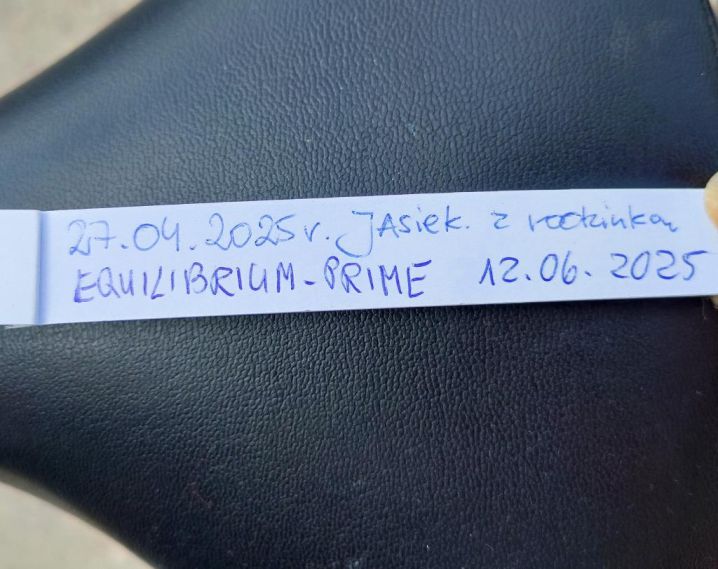 27.04.2025r. JAsiek. z rodzinką
EQUILIBRIUM-PRIME 12.06.2025